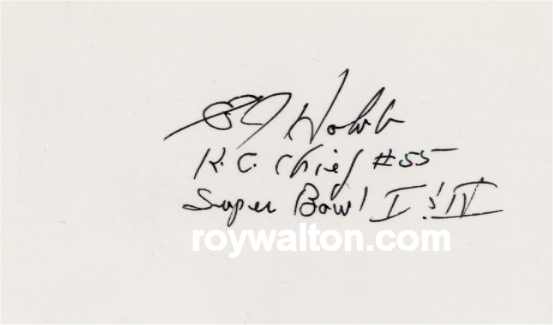 EJ Holub
K.C. Chief #55
Super Bowl I & IV
roywalton.com